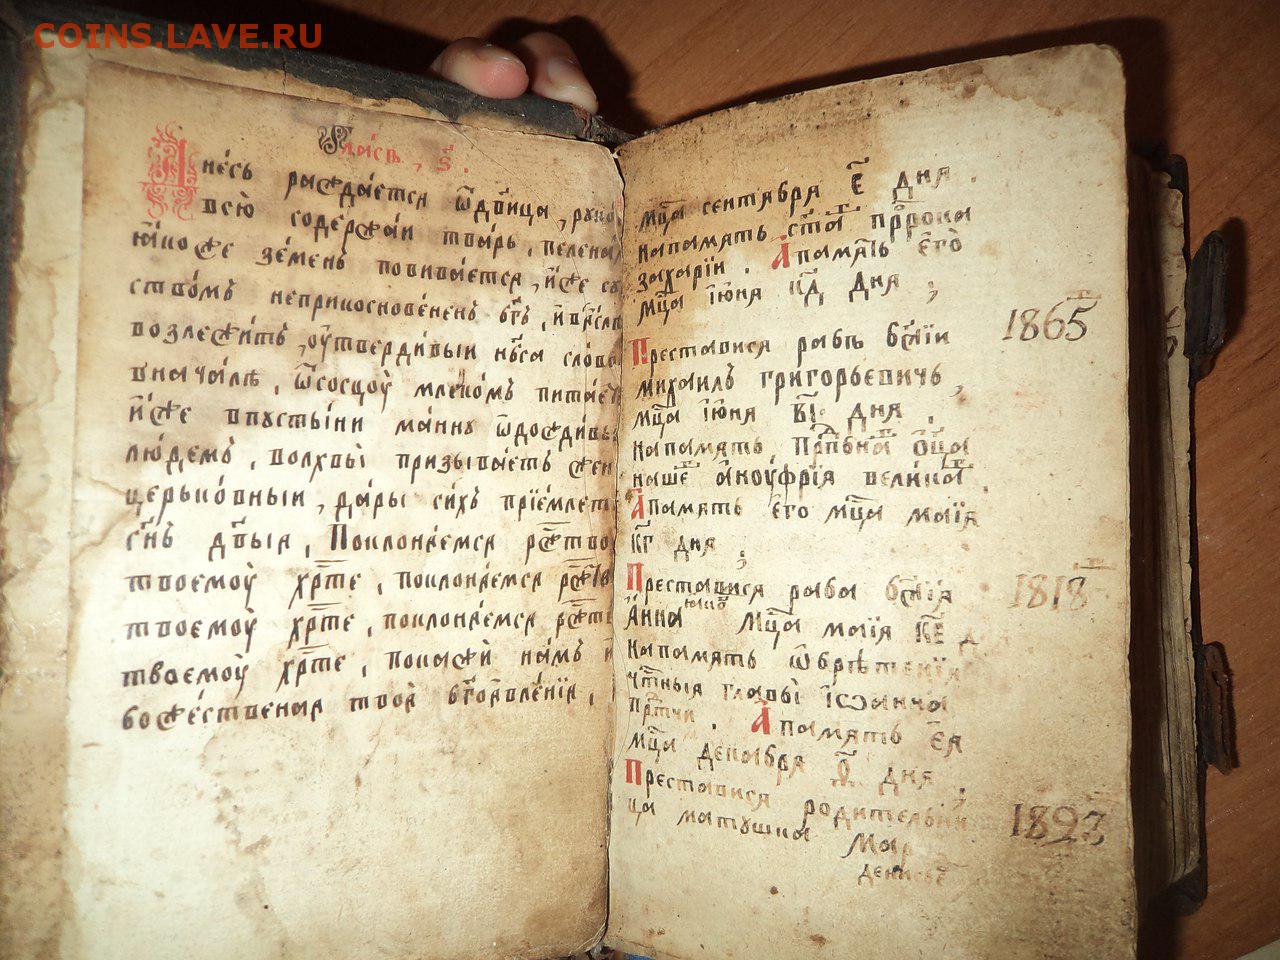 COINS.LAVE.RU
Гла́съ, ѕ҃.
Дне́сь ражда́ется ѿ дв҃ица, руко
всю̀ содержа́и тва́рь, пелена
ꙗ́коже зе́менъ повива́ется, и҆́же
ство́мъ неприкоснове́ненъ бг҃ъ, и҆
возлежи́тъ, ᲂу҆тверди́выи нб҃са сло́во
внача́лѣ, ѿ сосцᲂу̀ млеко́мъ пита́ет
и҆́же впусты́ни ма́нну ѿдожди́выи
лю́демъ, волхвы̀ призыва́етъ жени
церько́вныи, да́ры си́хъ прїе́млетъ
сн҃ъ дв҃ыѧ, Поклонѧ́емсѧ рж҃тво
твоемᲂу̀ хрт҃е, поклонѧ́емсѧ
твоемᲂу̀ хрт҃е, поклонѧ́емсѧ
тваемᲂу̀ хрт҃е, покажѝ на́мъ и
боже́ственаѧ твоѧ̀ бг҃оѧвле́нїѧ,
мц҃а сентября е҃ дня.
на память ст҃а прⷪ҇рока
захарїи. А память є҆гѡ̀
мц҃а їю́ня к҃д дня;
Преставися рабъ бж҃їи 1865
михаилъ григорьевичь,
мц҃а їю́ня в҃і дня.
на память, прпⷣбна ѻц҃а
наше ᲂануфрїя вели́ка.
А память его мц҃а маїя
к҃г дня;
Преставися раба бж҃їя 1818
Анна мц҃а маїя к҃е д
на память ѡбрѣтенїя
чⷭ҇тныя главы̀ їѡанна
прⷣтчи. А память ея
мц҃а декабря ѳ҃ дня.
Преставися родительни 1893
ца матушка Мар
денис